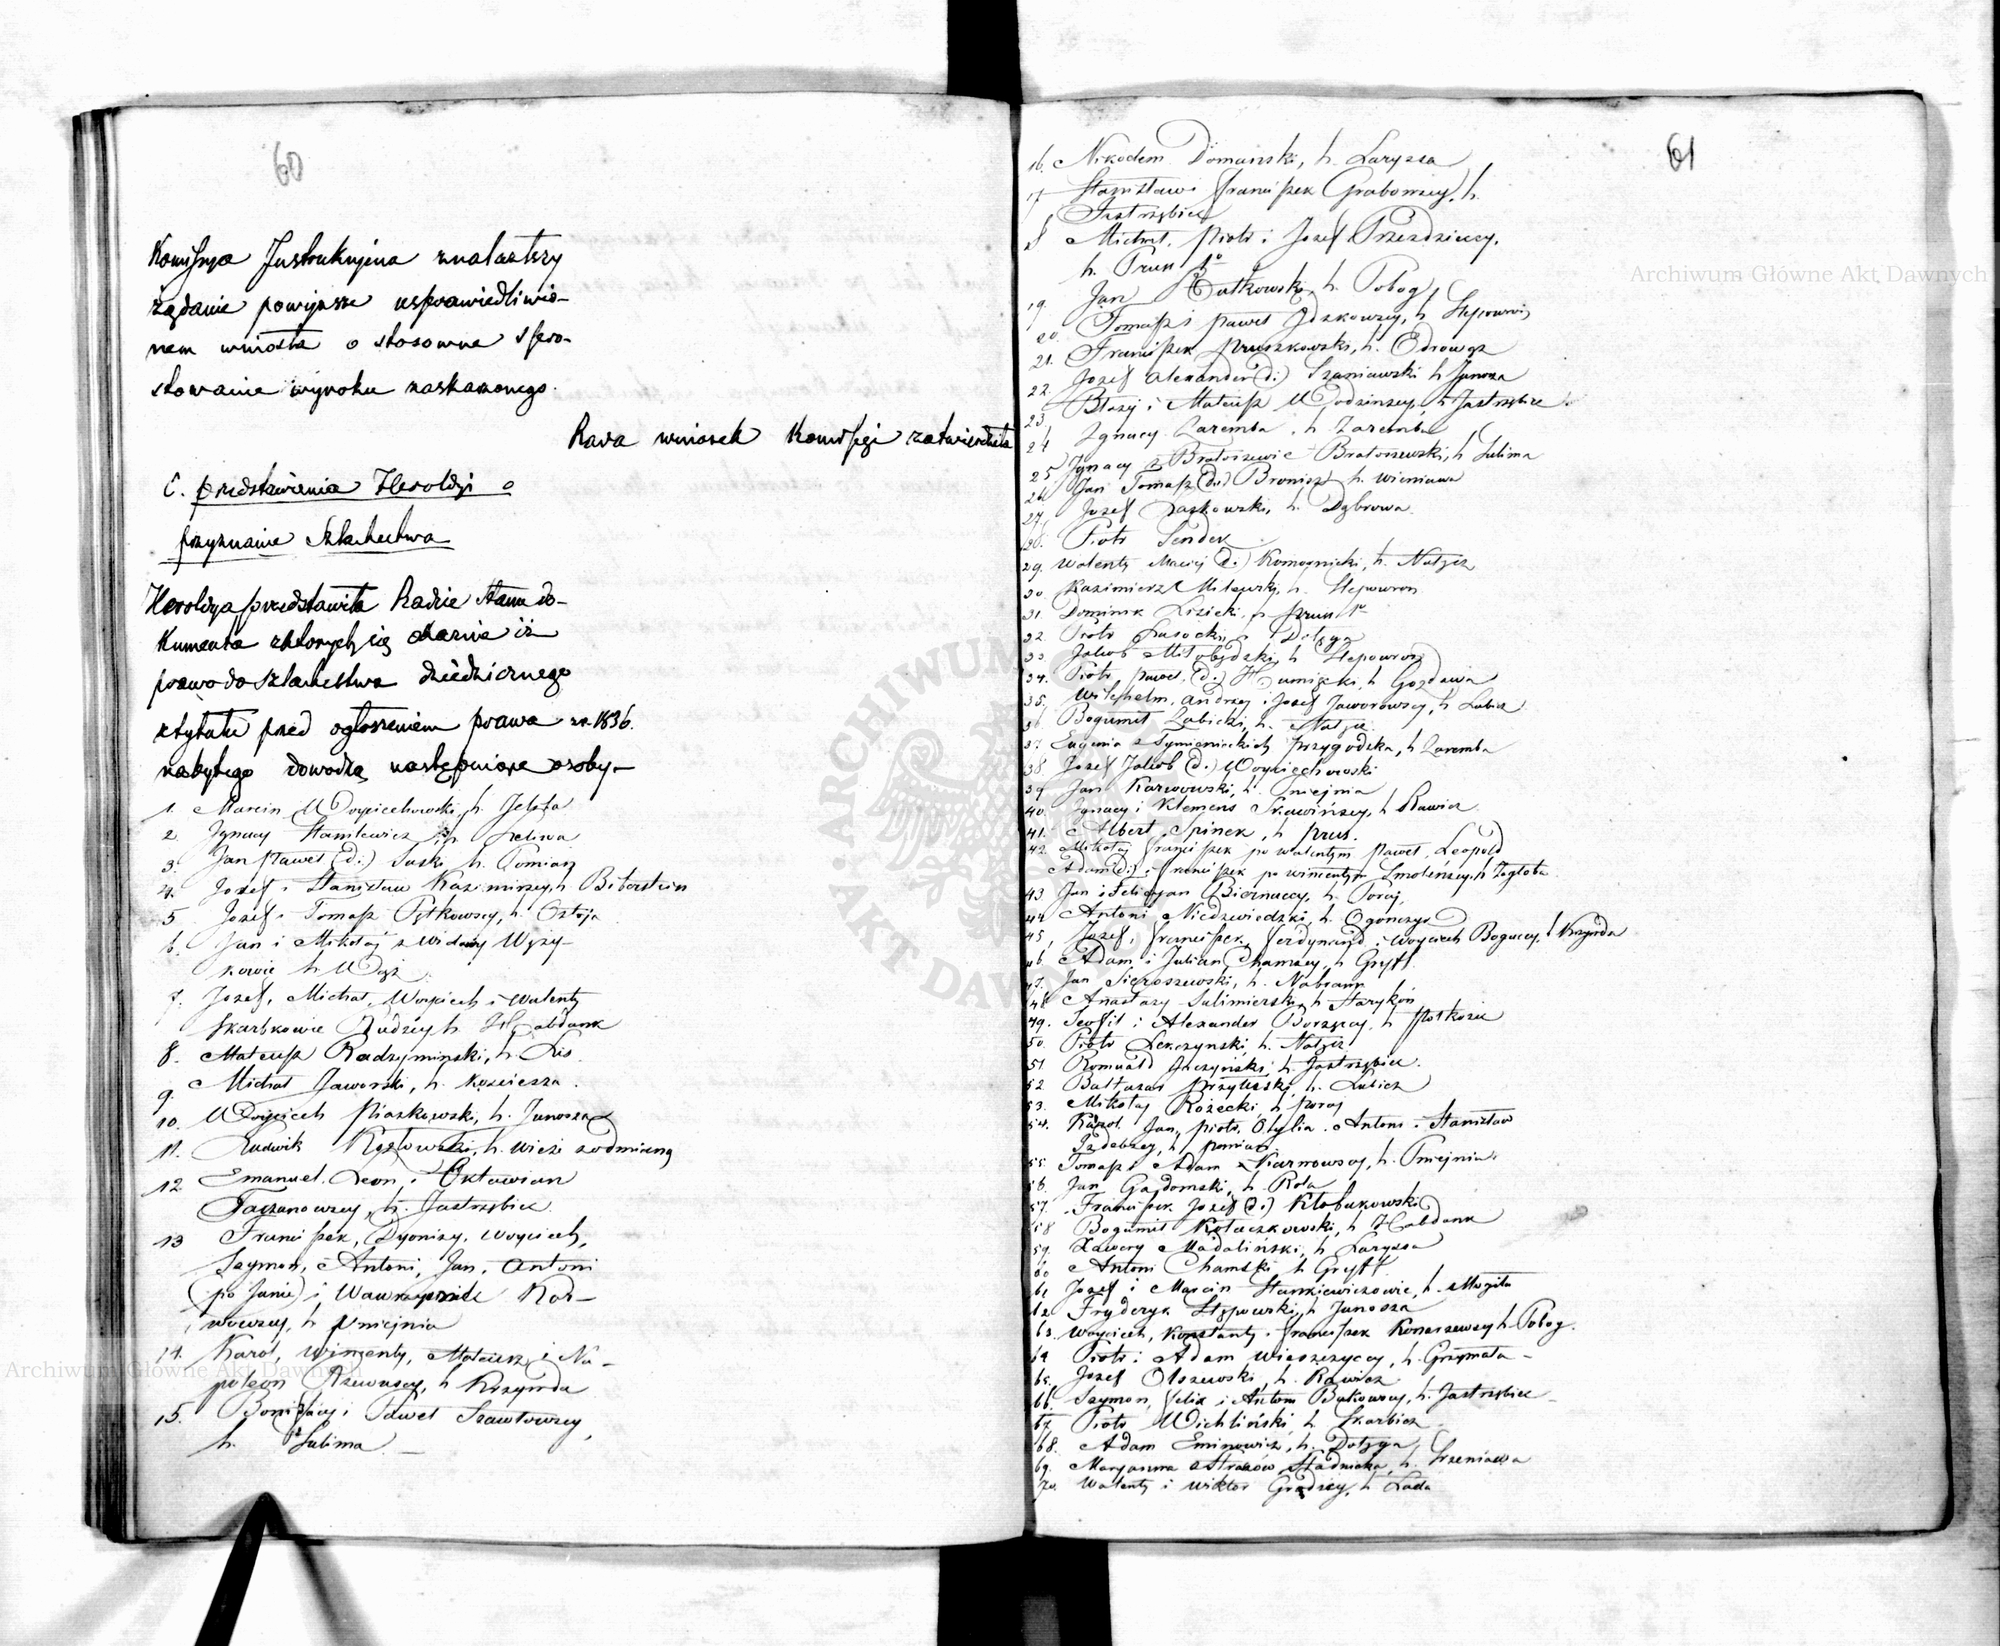 60
Kommissya Instrukcyjna znalazłszy
żądanie powyższe usprawiedliwio-
nem wniosła o stosowne spro-
stowanie wyroku zaskarzonego.
Rada wniosek Komissyi zatwierdziła
C. przedstawienia Heroldyi o
przyznanie Szlachectwa
Heroldya przedstawiła Radzie Stanu do-
kumenta z których się okazuie iż
prawo do szlachectwa dziedzicznego
z tytułu przed ogłoszeniem prawa z r. 1836.
nabytego dowodzą następujące osoby.-
1. Marcin Woyciechowski, h. Jelita
2. Ignacy Stanilewicz, h. Leliwa
3. Jan Paweł (d:) Suski h. Pomian
4. Jozef i Stanisław Kazimirscy, h. Biberstein
5 Jozef i Tomasz Pętkowscy, h. Ostoja
6. Jan i Mikołaj z Widawy Węży-
kowie h. Wąż.
7. Jozef, Michał, Woyciech i Walenty
Skarbkowie Rudzcy h. Habdank
8. Mateusz Radzyminski, h. Lis
9. Michał Jaworski, h. Kościesza.
10. Woyciech Piaskowski, h. Junosza
11. Ludwik Kozłowski, h. Wieże zodmianą
12. Emanuel, Leon, i Oktawian
Taczanowscy, h. Jastrzębiec
13 Franciszek, Dyonizy, Woyciech,
Szymon, Antoni, Jan, Antoni
(po Janie) i Wawrzyniec Kar-
wowscy, h Pniejnia
14. Karol, Wincenty, Mateusz i Na-
poleon Rzewuscy, h Krzywda
15. Bonifacy i Paweł Szawłowscy,
h. Sulima. -
61
16. Nikodem Domanski, h. Laryssa
17 Stanisław i Franciszek Grabowscy, h.
Jastrzębiec
18 Michał, Piotr i Jozef Przezdzieccy,
h. Prus 1o
19. Jan Rutkowski, h. Pobog
20. Tomasz i Paweł Idzkowscy, h Slepowron
21. Franciszek Pruszkowski, h. Odrowąż
22. Jozef Alexander (d:) Szaniawski h Junosza
23. Błażej i Mateusz Wodzinscy, h Jastrzębiec
24 Ignacy Zaremba, h Zaremba
25 Ignacy z Bratoszewic Bratoszewski, h Sulima
26 Jan Tomasz (d:) Bronisz h. Wieniawa
27. Jozef Laskowski, h. Dąbrowa.
28. Piotr Sendek
29. Walenty Maciej (d:) Komornicki, h. Nałęcz
30. Kazimierz Milewski, h. Slepowron
31. Dominik Lisicki, h Prus 1o
32. Piotr Lasocki, h Dołęga
33 Jakob Miłobędzki, h Slepowron
34. Piotr Paweł (d:) Humięcki, h Gozdawa
35, Wilhelm, Andrzej i Jozef Jaworowscy, h Lubicz
36 Bogumił Zabicki, h. Nałęcz
37. Eugenia z Tymienieckich Przygodzka, h Zaremba
38. Jozef Jakob (d:) Woyciechowski
39 Jan Karwowski, h. Pniejnia
40. Ignacy i Klemens Skawińscy, h Rawicz
41. Albert Spinek, h Prus.
42. Mikołaj Franciszek po Walentym Paweł, Leopold
Adam (d:) i Franciszek po Wincentym Smoleńscy, h Zagłoba
43 Jan i Felicyan Biernaccy, h. Poraj,
44 Antoni Niedzwiedzki, h. Ogończyk
45, Jozef, Franciszek, Ferdynand i Woyciech Boguccy, h Krzywda
46. Adam i Julian Chamscy, h Gryff.
47. Jan Sieroszewski, h. Nabram
48 Anastazy Sulimierski, h Starykoń
49. Teofil i Alexander Borzęccy, h Połkozic
50. Piotr Lekczynski, h. Nałęcz
51 Romuald Jaczyński, h Jastrzębiec.
52 Baltazar Przyłuski, h. Lubicz
53. Mikołaj Rożecki, h Poraj
54. Karol Jan, Piotr, Otylia, Antoni i Stanisław
Izdebscy, h Pomian
55. Tomasz i Adam Karnowscy, h. Pniejnia.
56. Jan Gazdomski, h. Rola
57. Franciszek Jozef (d:) Kłobukowski
58 Bogumił Kołaczkowski, h Habdank
59. Xawery Madaliński, h Laryssa
60 Antoni Chamski, h Gryff.
61 Jozef i Marcin Stankiewiczowie, h. Mogiła
62 Fryderyk Stępowski, h Junosza
63. Woyciech, Konstanty i Franciszek Konarzewscy h. Pobog.
64 Piotr i Adam Wieszczyccy, h. Grzymała -
65. Jozef Olszewski, h. Rawicz
66. Szymon, Felix i Antoni Bukowscy, h. Jastrzębiec -
67 Piotr Wichliński, h Skarbicz
68. Adam Eminowicz, h. Dołęga
69. Maryanna z Strasów Stadnicka, h. Szreniawa
70. Walenty i Wiktor Gradzcy, h Łada
Archiwum Główne Akt Dawnych
Archiwum Główne Akt Dawnych
ARCHIWUM GŁÓWNE AKT DAWNYCH